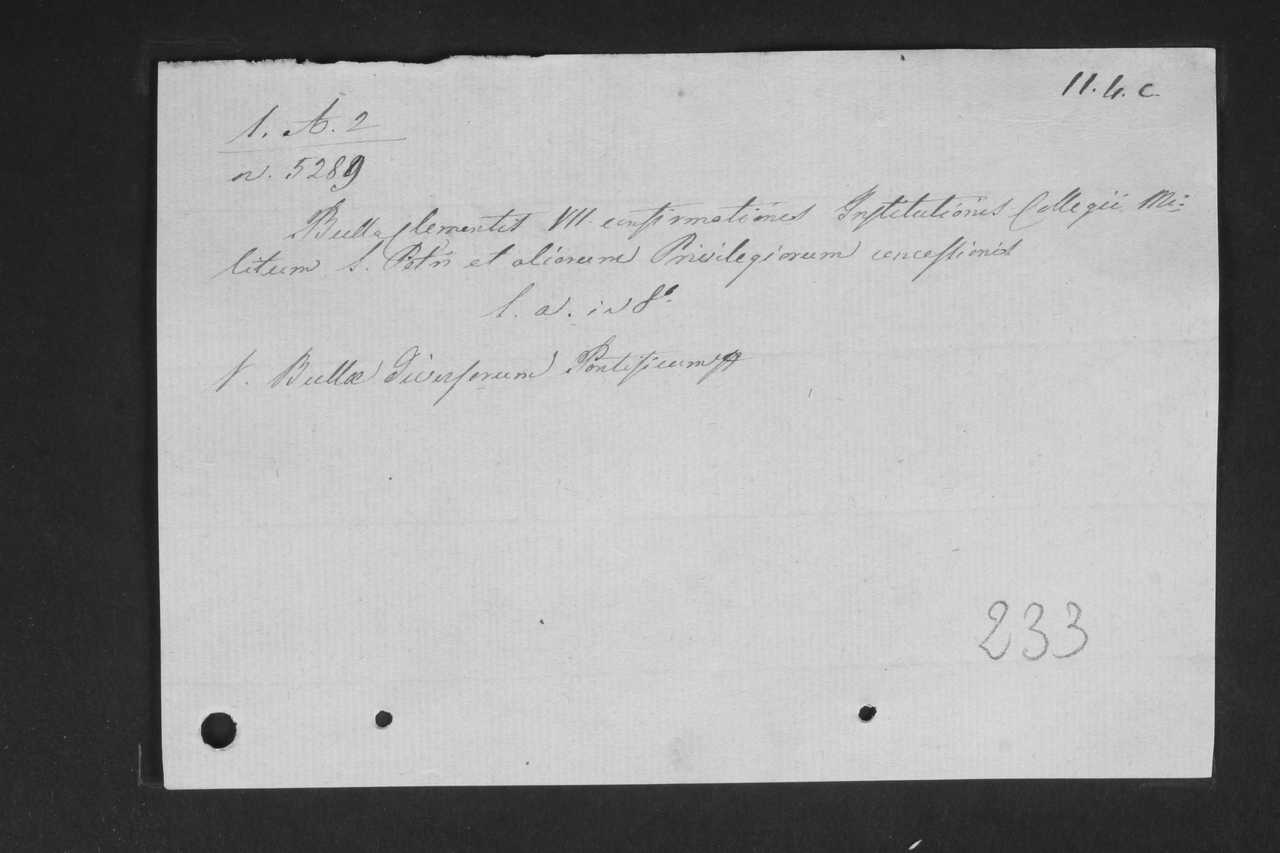 11. 4. c
1. A. 2
n. 5289
Bulla Clementis VII confirmationis Institutionis Collegii Mi=
litum S. Petri et aliorum Privilegiorum concessionis
s. a. in 8°
V. Bullae diversorum Pontificum
233